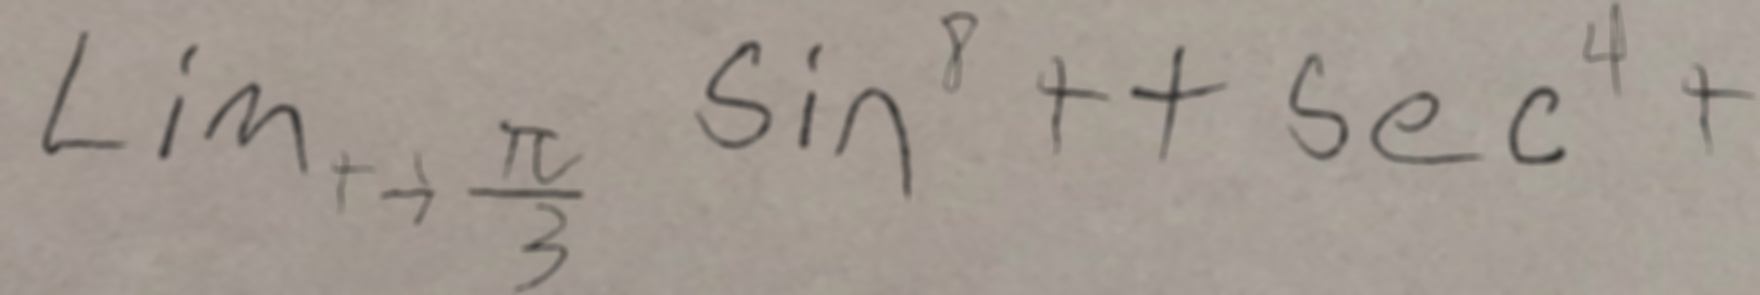 Lim t→π/3 Sin⁸ t + Sec⁴ t